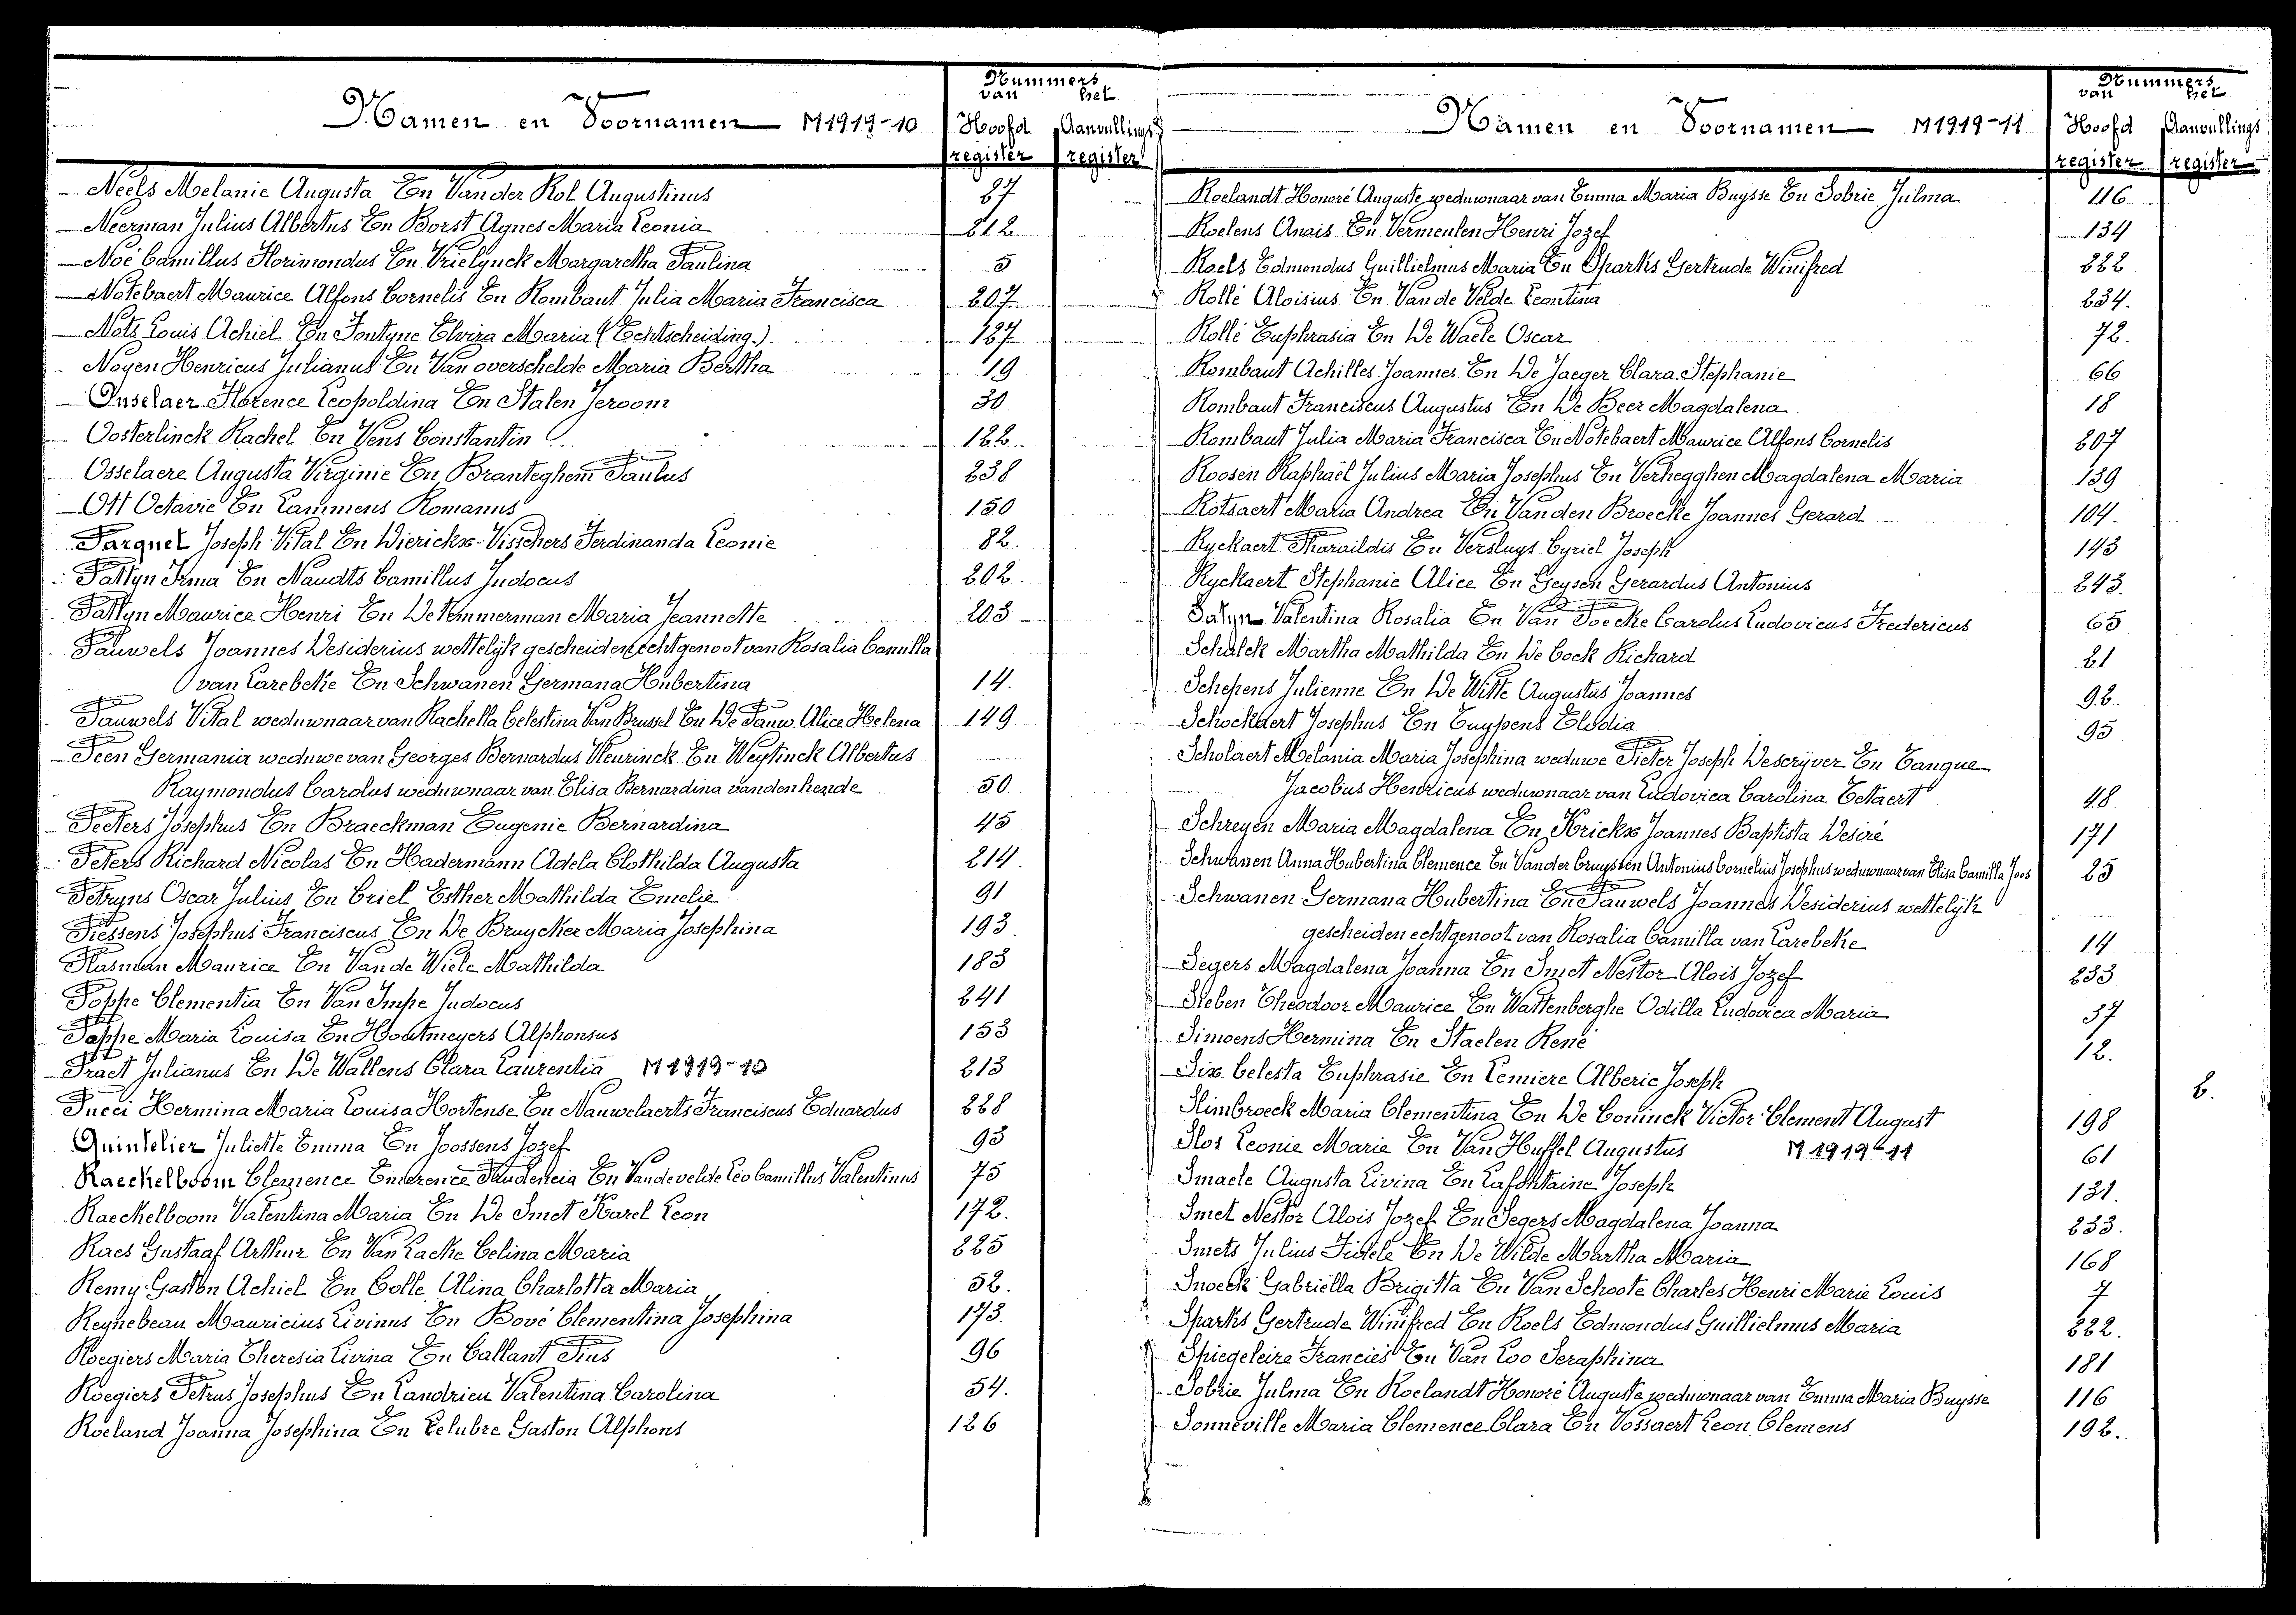 Nummers
van het
Namen en Voornamen M1919-10 Hoofd Aanvullings
register register
Neels Melanie Augusta En Van der Kol Augustinus 27
Neerman Julius Albertus En Borst Agnes Maria Leonia 212
Noë Camillus Florimondus En Vrielynck Margaretha Paulina 5
Notebaert Maurice Alfons Cornelis En Rombaut Julia Maria Francisca 207
Nots Louis Achiel En Fontyne Elvira Maria (Echtscheiding.) 127
Noyen Henricus Julianus En Van overschelde Maria Bertha 19
Onselaer Florence Leopoldina En Stalen Jeroom 30
Oosterlinck Rachel En Vens Constantin 122.
Osselaere Augusta Virginie En Branteghem Paulus 238
Ott Octavie En Lammens Romanus 150
Parquet Joseph Vital En Dierickx-Visschers Ferdinanda Leonie 82.
Pattyn Irma En Naudts Camillus Judocus 202.
Pattyn Maurice Henri En De Temmerman Maria Jeannette 203
Pauwels Joannes Desiderius wettelijk gescheiden echtgenoot van Rosalia Camilla
van Larebeke En Schwanen Germana Hubertina 14.
Pauwels Vital weduwnaar van Rachella Celestina Van Brussel En De Pauw Alice Helena 149
Peen Germania weduwe van Georges Bernardus Fleurinck En Weytinck Albertus
Raymondus Carolus weduwnaar van Elisa Bernardina vandenhende 50
Peeters Josephus En Braeckman Eugenie Bernardina 45
Peters Richard Nicolas En Hadermann Adela Clothilda Augusta 214.
Petryns Oscar Julius En Criel Esther Mathilda Emelie 91
Piessens Josephus Franciscus En De Bruycker Maria Josephina 193.
Plasman Maurice En Van de Wiele Mathilda 183
Poppe Clementia En Van Impe Judocus 241
Poppe Maria Louisa En Houtmeyers Alphonsus 153
Praet Julianus En De Wallens Clara Laurentia M1919-10 213
Pucci Hermina Maria Louisa Hortense En Nauwelaerts Franciscus Eduardus 228
Quintelier Juliette Emma En Joossens Jozef 93
Raeckelboom Clemence Emerence Prudencia En Vandevelde Leo Camillus Valentinus 75
Raeckelboom Valentina Maria En De Smet Karel Leon 172.
Raes Gustaaf Arthur En Van Lacke Celina Maria 225
Remy Gaston Achiel En Colle Alina Charlotta Maria 52.
Reynebeau Mauricius Livinus En Bové Clementina Josephina 173.
Roegiers Maria Theresia Livina En Callant Pius 96
Roegiers Petrus Josephus En Landrieu Valentina Carolina 54.
Roeland Joanna Josephina En Lelubre Gaston Alphons 126
Nummers
van het
Namen en Voornamen M1919-11 Hoofd Aanvullings
register register
Roelandt Honoré Auguste weduwnaar van Emma Maria Buysse En Sobrie Julma 116.
Roelens Anais En Vermeulen Henri Jozef 134
Roels Edmondus Guillielmus Maria En Sparks Gertrude Winifred 222
Rollé Aloisius En Van de Velde Leontina 234.
Rollé Euphrasia En De Waele Oscar 72.
Rombaut Achilles Joannes En De Jaeger Clara Stephanie 66
Rombaut Franciscus Augustus En De Beer Magdalena 18
Rombaut Julia Maria Francisca En Notebaert Maurice Alfons Cornelis 207
Roosen Raphaël Julius Maria Josephus En Verhegghen Magdalena Maria 139
Rotsaert Maria Andrea En Van den Broecke Joannes Gerard 104.
Ryckaert Pharaildis En Versluys Cyriel Joseph 143
Ryckaert Stephanie Alice En Geysen Gerardus Antonius 243.
Salyn Valentina Rosalia En Van Poecke Carolus Ludovicus Fredericus 65
Schalck Martha Mathilda En De Cock Richard 21
Schepens Julienne En De Witte Augustus Joannes 92.
Schockaert Josephus En Tuypens Elodia 95
Scholaert Melania Maria Josephina weduwe Pieter Joseph Descryver En Tanque
Jacobus Henricus weduwnaar van Ludovica Carolina Tetaert 48
Schreyen Maria Magdalena En Krickx Joannes Baptista Desiré 171
Schwanen Anna Hubertina Clemence En Vander Cruyssen Antonius Cornelius Josephus weduwnaar van Elisa Camilla Joos 25
Schwanen Germana Hubertina En Pauwels Joannes Desiderius wettelijk
gescheiden echtgenoot van Rosalia Camilla van Larebeke 14
Segers Magdalena Joanna En Smet Nestor Alois Jozef 233
Sieben Theodoor Maurice En Wattenberghe Odilla Ludovica Maria 37
Simoens Hermina En Staelen René 12.
Six Celesta Euphrasie En Lemiere Alberic Joseph 2.
Slimbroeck Maria Clementina En De Coninck Victor Clement August 198
Slos Leonie Marie En Van Huffel Augustus M1919-11 61
Smaele Augusta Livina En Lafontaine Joseph 131
Smet Nestor Alois Jozef En Segers Magdalena Joanna 233.
Smets Julius Fidele En De Wilde Martha Maria 168
Snoeck Gabriëlla Brigitta En Van Schoote Charles Henri Marie Louis 7
Sparks Gertrude Winifred En Roels Edmondus Guillielmus Maria 222.
Spiegeleire Francies En Van Loo Seraphina 181
Sobrie Julma En Roelandt Honoré Auguste weduwnaar van Emma Maria Buysse 116
Sonneville Maria Clemence Clara En Vossaert Leon Clemens 192.